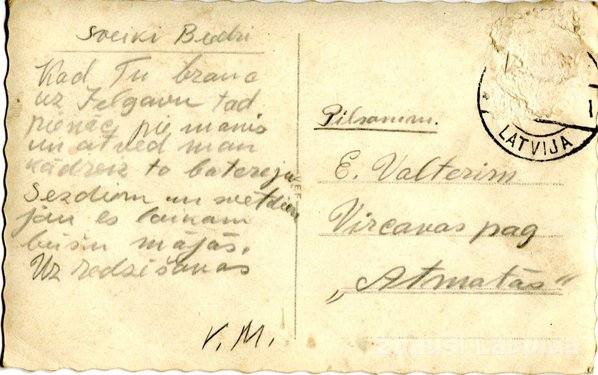 sveiki Bedri
Kad Tu brauc
uz Jelgavu tad
pienāc pie manis
un atved man
kādreiz to batereju
Sezdien un svētdien
jau es laikam
būšu mājās.
Uz redzēšanas
V. M.
LATVIJA
Pilsonim.
E. Valterim
Vircavas pag
„Atmatās"